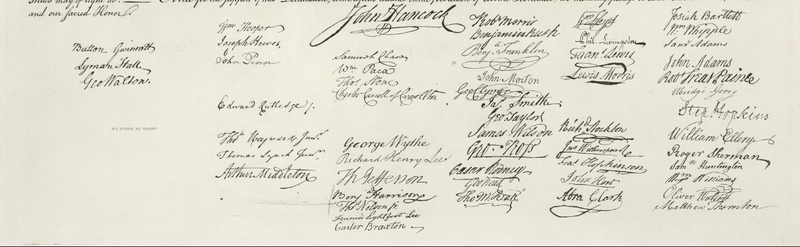 and our sacred Honor.
John Hancock
Button Gwinnett
Lyman Hall
Geo Walton.
Wm Hooper
Joseph Hewes,
John Penn
Edward Rutledge /.
Thos Heyward Junr.
Thomas Lynch Junr.
Arthur Middleton
Samuel Chase
Wm Paca
Thos Stone
Charles Carroll of Carrollton
George Wythe
Richard Henry Lee
Th Jefferson
Benja Harrison
Thos Nelson jr.
Francis Lightfoot Lee
Carter Braxton
Robt Morris
Benjamin Rush
Benja Franklin
John Morton
Geo Clymer
Jas Smith
Geo. Taylor
James Wilson
Geo. Ross
Caesar Rodney
Geo Read
Tho M:Kean
Wm Floyd
Phil. Livingston
Frans Lewis
Lewis Morris
Richd Stockton
Jno Witherspoon
Fras Hopkinson
John Hart
Abra Clark
Josiah Bartlett
Wm Whipple
Saml Adams
John Adams
Robt Treat Paine
Elbridge Gerry
Step. Hopkins
William Ellery
Roger Sherman
Saml Huntington
Wm Williams
Oliver Wolcott
Matthew Thornton